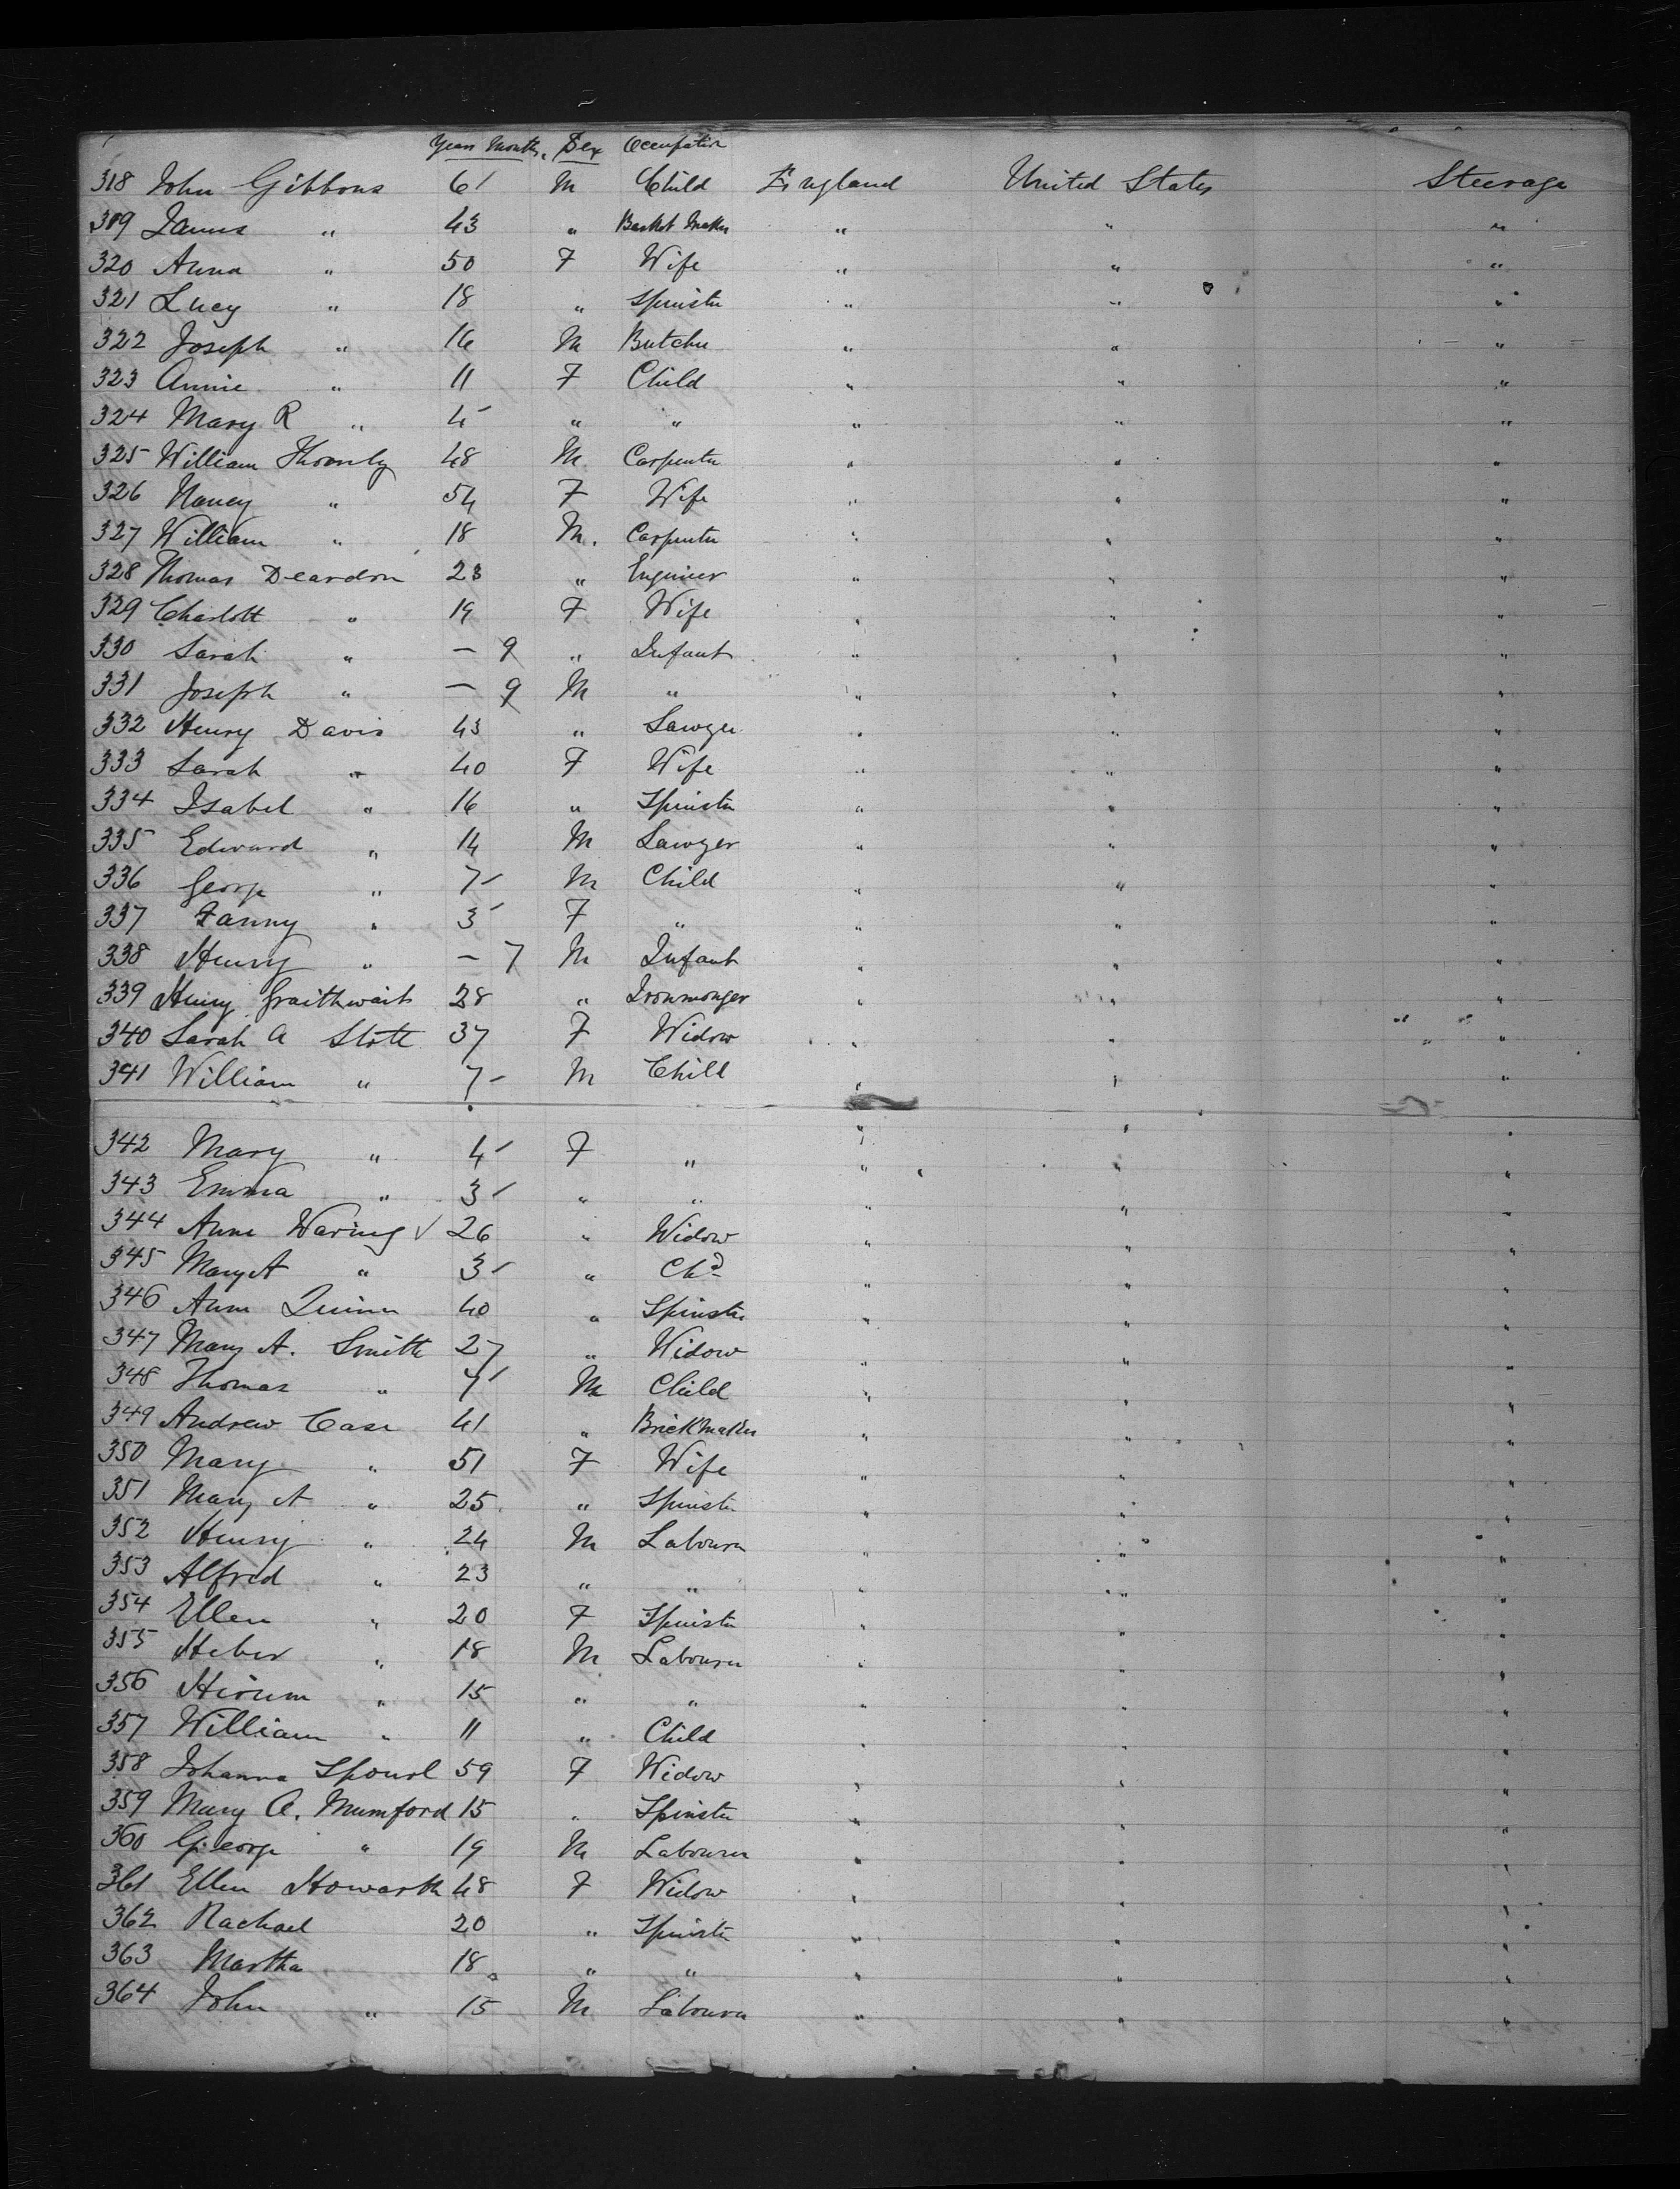 Years Months. Sex Occupation
318 John Gibbons 6 M Child England United States Steerage
319 James " 43 " Basket Maker " " "
320 Anna " 50 F Wife " " "
321 Lucy " 18 " Spinster " " "
322 Joseph " 16 M Butcher " " "
323 Annie " 11 F Child " " "
324 Mary R " 4 " " " " "
325 William Thornly 48 M Carpenter " " "
326 Nancy " 54 F Wife " " "
327 William " 18 M. Carpenter " " "
328 Thomas Deardon 23 " Engineer " " "
329 Charlott " 19 F Wife " " "
330 Sarah " — 9 " Infant " " "
331 Joseph " — 9 M " " " "
332 Henry Davis 43 " Sawyer " " "
333 Sarah " 40 F Wife " " "
334 Isabel " 16 " Spinster " " "
335 Edward " 14 M Sawyer " " "
336 George " 7 M Child " " "
337 Fanny " 3 F " " " "
338 Henry " — 7 M Infant " " "
339 Henry Graithwaite 28 " Ironmonger " " "
340 Sarah A Stott 37 F Widow " " "
341 William " 7 M Child " " "
342 Mary " 4 F " " " "
343 Emma " 3 " " " " "
344 Anne Waring ✓ 26 " Widow " " "
345 Mary A " 3 " Chd " " "
346 Ann Quinn 40 " Spinster " " "
347 Mary A. Smith 27 " Widow " " "
348 Thomas " 7 M Child " " "
349 Andrew Case 41 " Brickmaker " " "
350 Mary " 51 F Wife " " "
351 Mary A " 25 " Spinster " " "
352 Henry " 24 M Labourer " " "
353 Alfred " 23 " " " " "
354 Ellen " 20 F Spinster " " "
355 Heber " 18 M Labourer " " "
356 Hirum " 15 " " " " "
357 William " 11 " Child " " "
358 Johanna 59 F Widow " " "
359 Mary A. Mumford 15 " Spinster " " "
360 George " 19 M Labourer " " "
361 Ellen Howarth 48 F Widow " " "
362 Rachael 20 " Spinster " " "
363 Martha 18 " " " " "
364 John " 15 M Labourer " " "